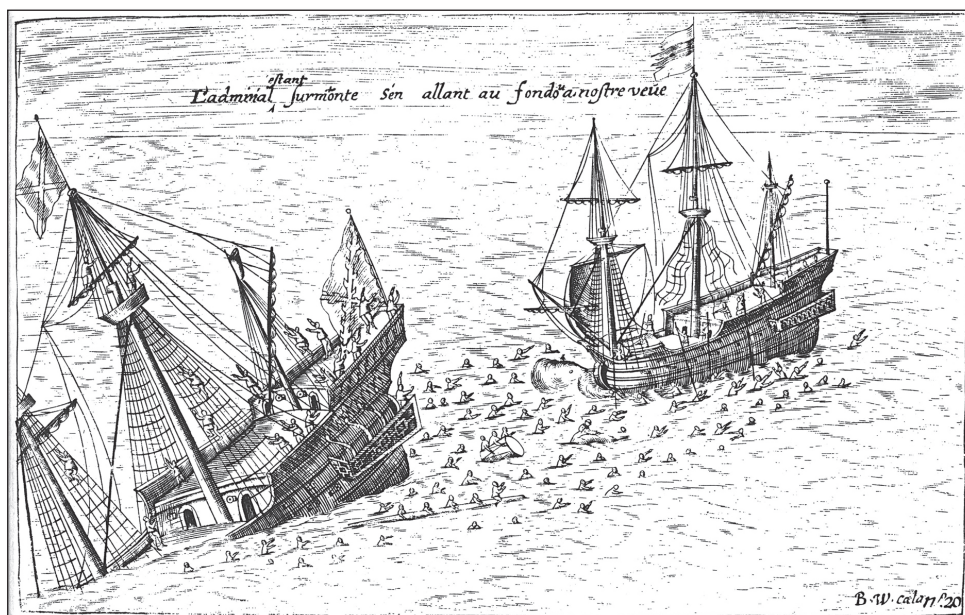 L'admiral estant surmonte sen allant au fond a nostre veüe
B. W. cala nº. 20